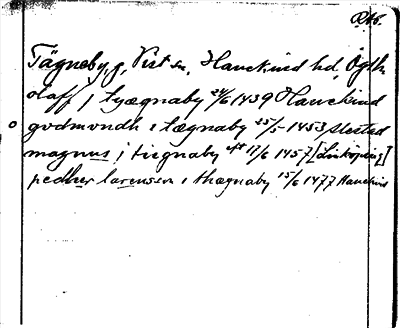 Tägneby, g, Vist sn, Hanekind hd, Ögtl.
olaff j tyægnaby 24/6 1439 Hanekind
gvdmvndh i tægnaby 25/5 1453
magnus j tiegnaby eft 17/6 1457 [Linköping]
pedher larensson i thægnaby 15/6 1477 Hanekind